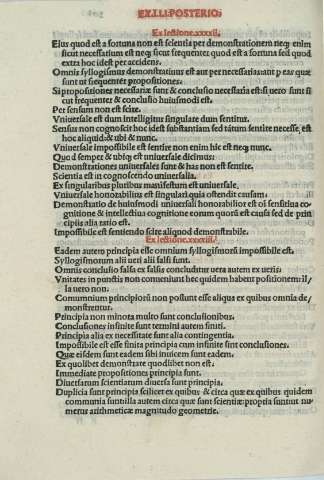 EX.I.LI.POSTERIO:
Ex lectione.xxxxii.
Eius quod est a fortuna non est scientia per demonstrationem neqꝫ enim
sicut necessarium est neqꝫ sicut frequenter quod est a fortuna sed quod
extra hoc idest per accidens.
Omnis syllogismus demonstratiuus est aut per necessarias: aut p eas quæ
sunt ut frequenter propositiones.
Si propositiones necessariæ sunt & conclusio necessaria est: si uero sunt si
cut frequenter & conclusio huiusmodi est.
Per sensum non est scias.
Vniuersale est dum intelligitur singulare dum sentitur.
Sensus non cognoscit hoc idest substantiam sed tātum sentire necesse, est
hoc aliquid & ubi & nunc.
Vniuersale impossibile est sentire non enim hic est neqꝫ nunc.
Quod semper & ubiqꝫ est uniuersale dicimus.
Demonstrationes uniuersales sunt & has non est sentire.
Scientia est in cognoscendo uniuersalia.
Ex singularibus pluribus manifestum est uniuersale.
Vniuersale honorabilius est singulari quia ostendit causam.
Demonstratio de huiusmodi uniuersali honorabilior est oī sensitiua co-
gnitione & intellectiua cognitione eorum quorū est causa sed de prin
cipiis alia ratio est.
Impossibile est sentiendo scire aliquod demonstrabile.
Ex lectione.xxxxiii.
Eadem autem principia esse omnium syllogismorū impossibile est.
Syllogismorum alii ueri alii falsi sunt.
Omnis conclusio falsa ex falsis concluditur uera autem ex ueris.
Vnitates in punctis non conueniunt hec quidem habent positionem: il/
la uero non.
Comunium principiorū non possunt esse aliqua ex quibus omnia de/
monstrentur.
Principia non minora multo sunt conclusionibus.
Conclusiones infinite sunt termini autem finiti.
Principia alia ex necessitate sunt alia contingentia.
Impossibile est esse finita principia cum infinite sunt conclusiones.
Quæ eisdem sunt eadem sibi inuicem sunt eadem.
Ex quolibet demonstrare quodlibet non est.
Immediate propositiones principia sunt.
Diuersarum scientiarum diuersa sunt principia.
Duplicia sunt principia scilicet ex quibus & circa quæ ex quibus quidem
communia sunt illa autem circa quæ sunt scientiæ: propria sunt ut nu-
merus arithmeticæ magnitudo geometrie.